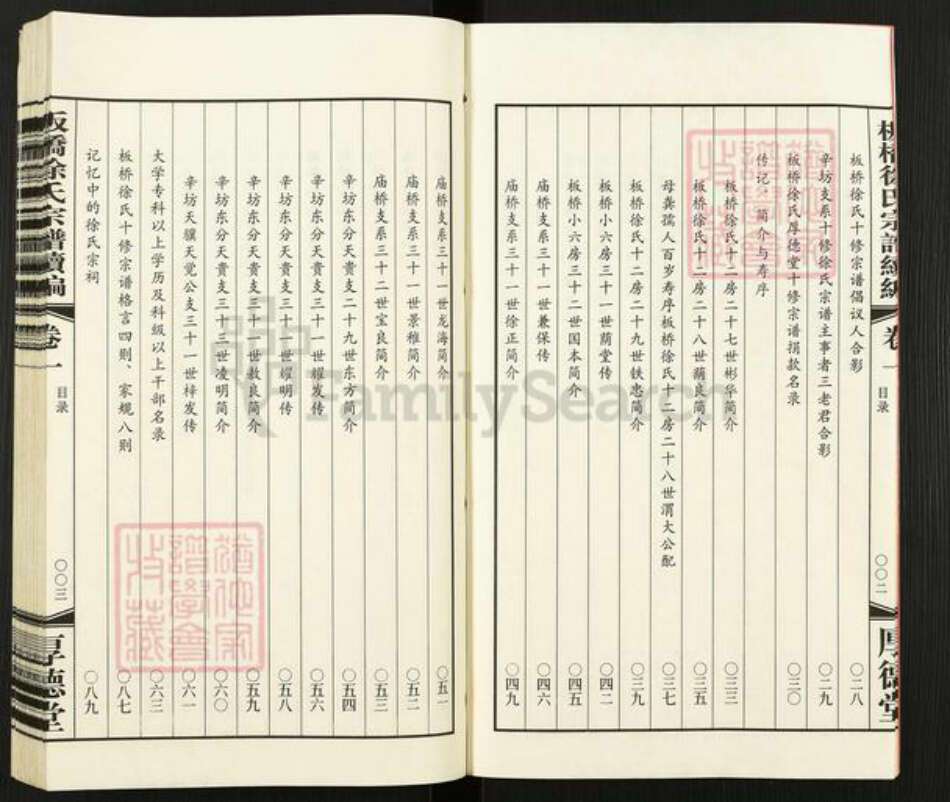 板桥徐氏宗谱續编 卷一 目录 〇〇二 厚德堂
板桥徐氏十修宗谱倡议人合影 〇二八
辛坊支系十修徐氏宗谱主事者三老君合影 〇二九
板桥徐氏厚德堂十修宗谱捐款名录 〇三〇
传记、简介与寿序
板桥徐氏十二房二十七世彬华简介 〇三三
板桥徐氏十二房二十八世荫良简介 〇三五
母龚孺人百岁寿序板桥徐氏十二房二十八世渭大公配 〇三七
板桥徐氏十二房二十九世铁忠简介 〇三九
板桥小六房三十一世荫堂传 〇四二
板桥小六房三十二世国本简介 〇四五
庙桥支系三十一世兼保传 〇四六
庙桥支系三十一世徐正简介 〇四九
庙桥支系三十一世龙海简介 〇五一
庙桥支系三十一世景稚简介 〇五二
庙桥支系三十二世宝良简介 〇五三
辛坊东分天贵支二十九世东方简介 〇五四
辛坊东分天贵支三十一世耀发传 〇五六
辛坊东分天贵支三十一世耀明传 〇五八
辛坊东分天贵支三十二世敖良简介 〇五九
辛坊东分天贵支三十三世凌明简介 〇六〇
辛坊天骥天觉公支三十一世梓发传 〇六一
大学专科以上学历及科级以上干部名录 〇六三
板桥徐氏十修宗谱格言四则、家规八则 〇八七
记忆中的徐氏宗祠 〇八九
板橋徐氏宗譜續编 卷一 目录 〇〇三 厚德堂
譜學會
收藏
FamilySearch